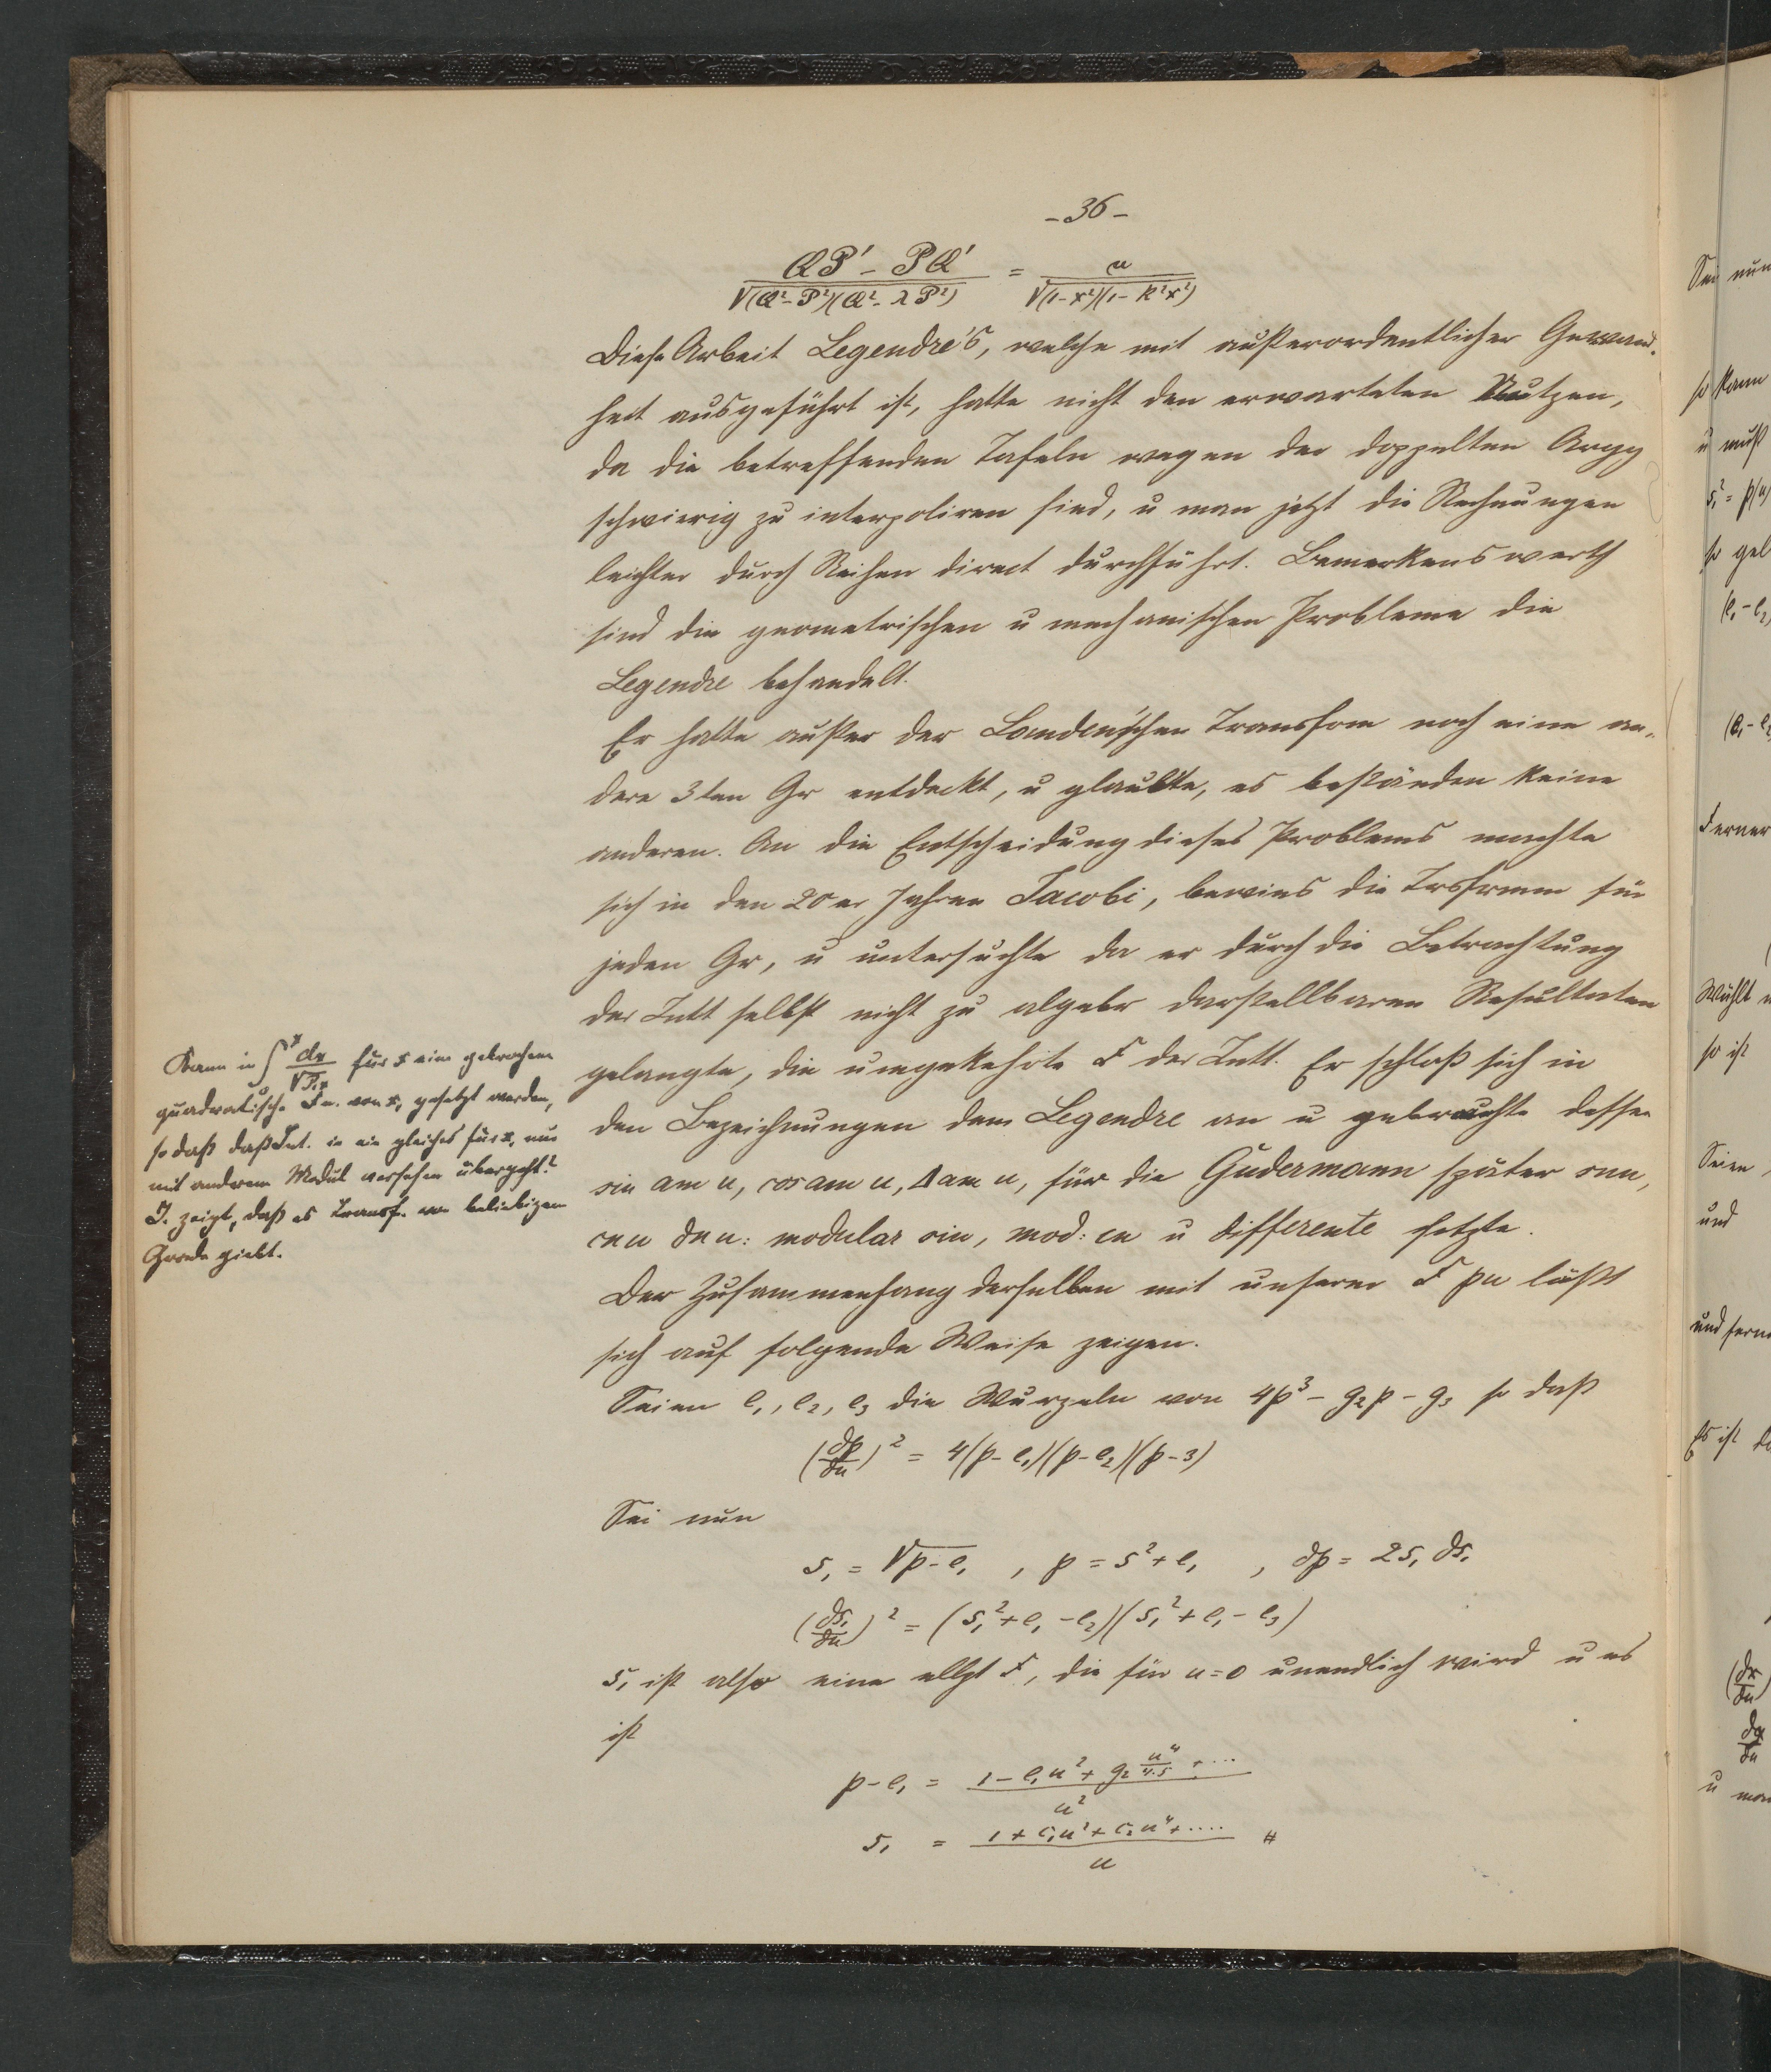 - 36 -
(QP' - PQ')/√((Q²-P²)(Q²-λP²)) = a/√((1-x²)(1-k²x²))
Diese Arbeit Legendre's, welche mit außerordentlicher Gewand-
heit ausgeführt ist, hatte nicht den erwarteten Nutzen,
da die betreffenden Tafeln wegen der doppelten Argg
schwierig zu interpoliren sind, u man jetzt die Rechnungen
leichter durch Reihen direct durchführt. Bemerkenswerth
sind die geometrischen u mechanischen Probleme die
Legendre behandelt.
Er hatte außer der Landen'schen Transfom noch eine an-
dere 3ten Gr entdeckt, u glaubte, es beständen keine
anderen. An die Entscheidung dieses Problems machte
sich in den 20er Jahren Jacobi, bewies die Trsfrmm für
jeden Gr, u untersuchte da er durch die Betrachtung
der Intt selbst nicht zu algebr darstellbaren Resultaten
gelangte, die umgekehrte F der Intt. Er schloß sich in
den Bezeichnungen dem Legendre an u gebrauchte dessen
sin am u, cos am u, Δ am u, für die Gudermann später snu,
cnu dnu: modular sin, mod: cn u differente setzte.
Der Zusammenhang derselben mit unserer F pu läßt
sich auf folgende Weise zeigen.
Seien e₁, e₂, e₃ die Wurzeln von 4p³ - g₂p - g₃ so daß
(dp/du)² = 4(p-e₁)(p-e₂)(p-3)
Sei nun
s₁ = √(p-e₁) , p = s²+e₁ , dp = 2s₁ ds₁
(ds₁/du)² = (s₁²+e₁-e₂)(s₁²+e₁-e₃)
s₁ ist also eine ellpt F, die für u=0 unendlich wird u es
ist
p-e₁ = (1 - e₁u² + g₂ u⁴/4.5 + ...)/u²
s₁ = (1 + c₁u² + c₂u⁴ + ....)/u #
Kann in ∫ˣ dx/√Rx für x eine gebrochene
quadratische Fn. von x₁ gesetzt werden,
so daß daß Int. in ein gleiches für x₁ nur
mit anderem Modul versehen übergeht?
J. zeigt, daß es Transf. von beliebigem
Grade giebt.
Sei nun
so kann
u muß
s₁² = p(u)
so gel
(e₁-e₂)
(e₁-e₂
Ferner
Wählt
so ist
Seien
und
und fern
Es ist
(dx/du)
u man